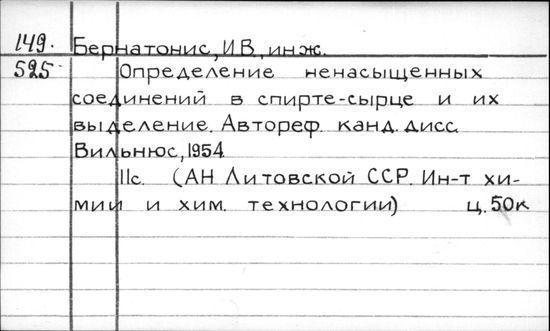 149. Бернатонис, И.В., инж.
525 Определение ненасыщенных
соединений в спирте-сырце и их
выделение. Автореф. канд. дисс.
Вильнюс, 1954.
11с. (АН Литовской ССР. Ин-т хи-
мии и хим. технологии) ц. 50к